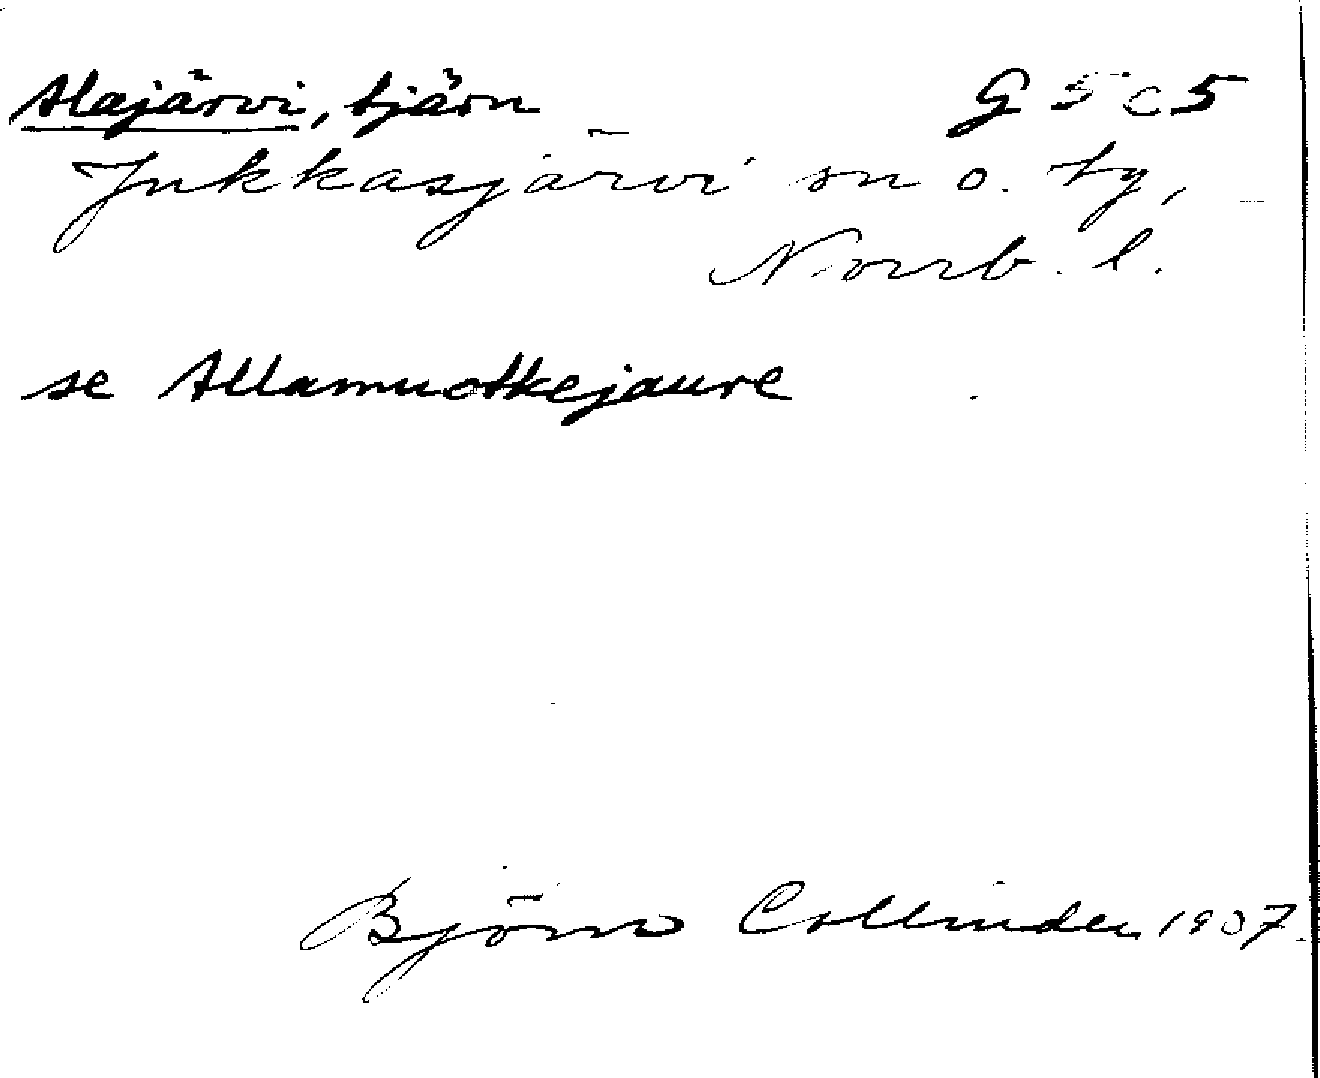 Alajärvi, tjärn G 5 c 5
Jukkasjärvi sn o. tg,
Norrb. l.
se Allamuotkejaure
Björn Collinder 1907.